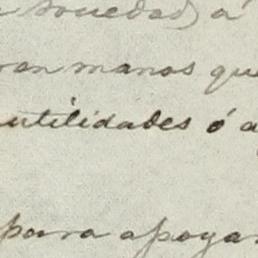 sociedad, á
manos que
utilidades ó a
para apoyar